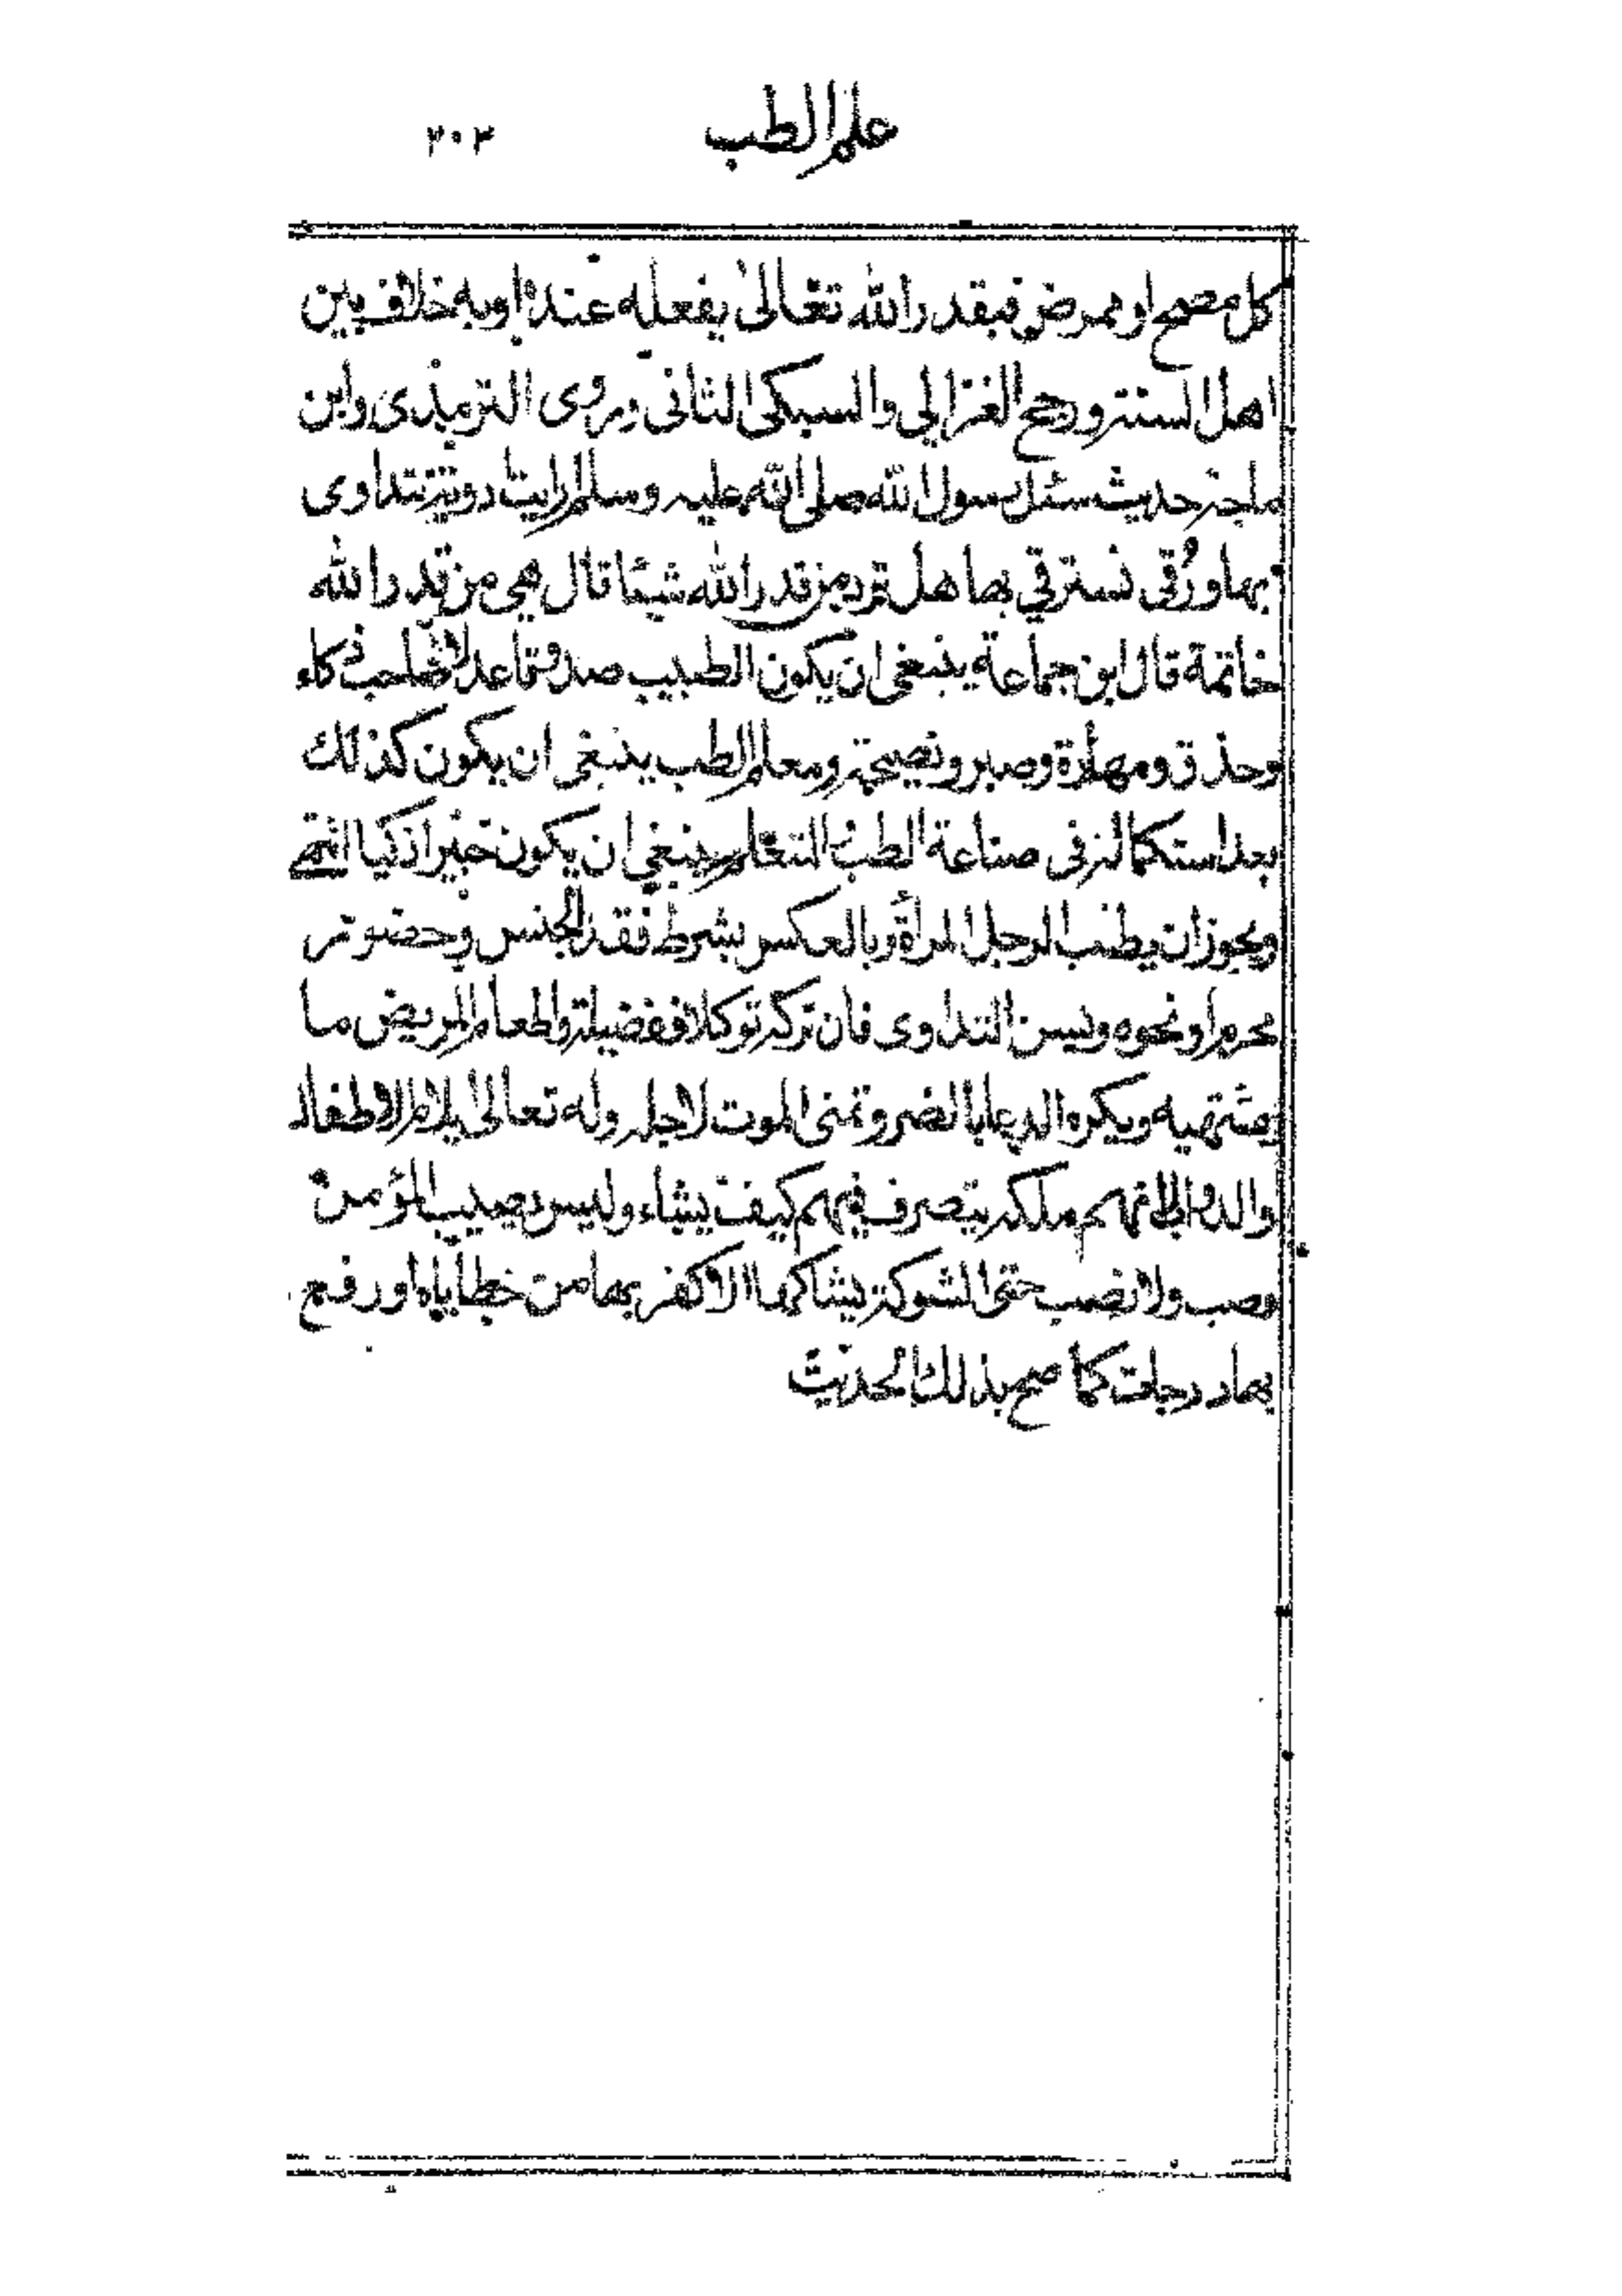 علم الطب ٣٠٣
كل مصح او ممرض فبقدر الله تعالى يفعله عنده او به خلاف بين
اهل السنة ورجح الغزالي والسبكي الثاني وروى الترمذي وابن
ماجة حديث سئل رسول الله صلى الله عليه وسلم ارايت ادوية نتداوى
بها ورُقى نسترقي بها هل ترد من قدر الله شيئا قال هي من قدر الله
خاتمة قال ابن جماعة ينبغي ان يكون الطبيب صدوقا عدلا صاحب ذكاء
وحذق ومهارة وصبر ونصيحة ومعلم الطب ينبغي ان يكون كذلك
بعد استكماله في صناعة الطب والتعلم ينبغي ان يكون خبيرا ذكيا انتهى
ويجوز ان يطبب الرجل المرأة وبالعكس بشرط فقد الجنس وحضور
محرم او نحوه ويسن التداوى فان تركه توكلا ففضيلة واطعام المريض ما
يشتهيه ويكره الدعا بالضر وتمنى الموت لاجله وله تعالى ايلام الاطفال
والدواب لانهم ملكه يتصرف فيهم كيف يشاء وليس يصيب المؤمن
وصب ولا نصب حتى الشوكة يشاكها الا كفر بها من خطاياه او رفع
بها درجات كما صح بذلك الحديث